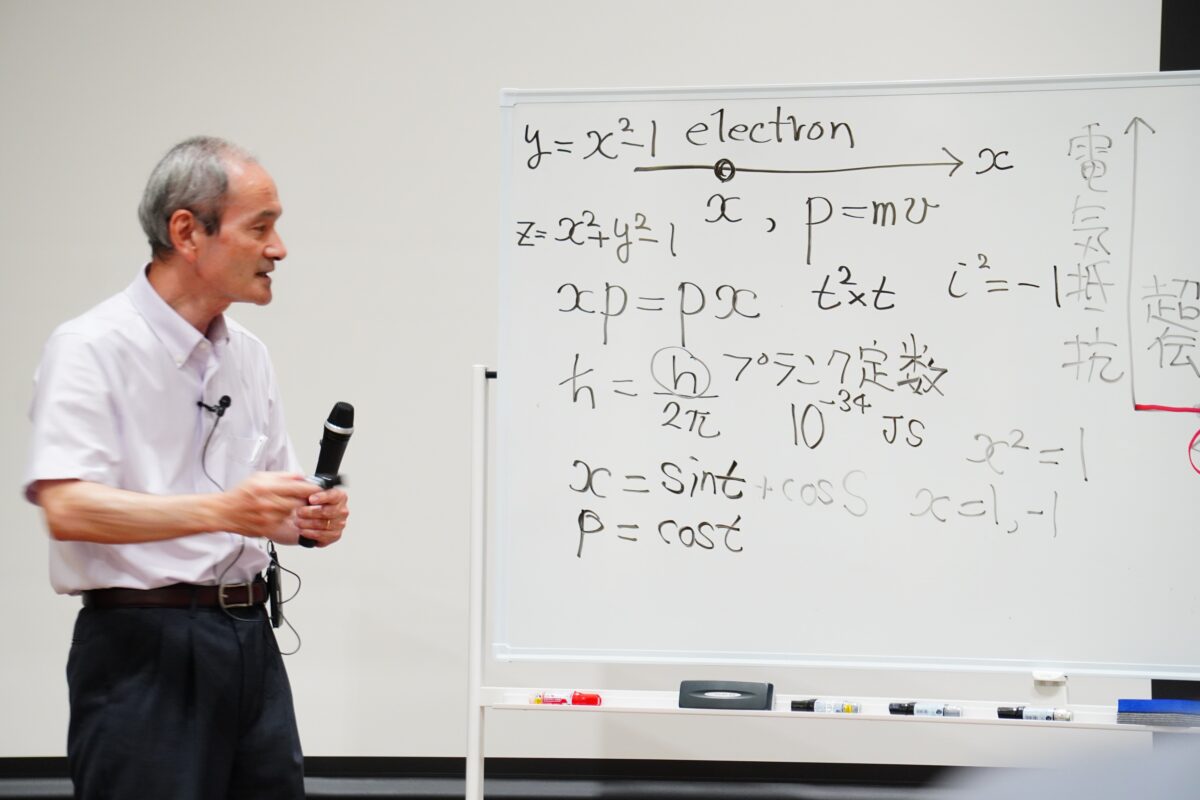 y=x²-1 electron
x
x , p=mv
z=x²+y²-1
xp=px t²×t i²=-1
ħ = h/2π プランク定数
10⁻³⁴ JS
x = sint + cosS
p = cost
x²=1
x=1,-1
電気抵抗
超伝